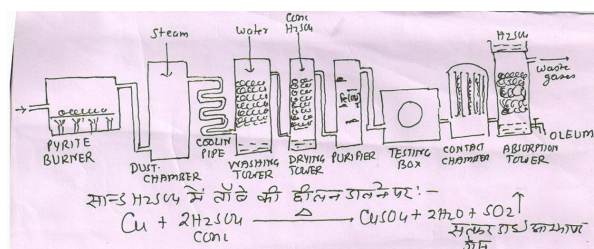 Steam
Water
Conc
H2SO4
H2SO4
Waste
gases
PYRITE
BURNER
DUST-
CHAMBER
COOLIN
PIPE
WASHING
TOWER
DRYING
TOWER
PURIFIER
TESTING
BOX
CONTACT
CHAMBER
ABSORPTION
TOWER
OLEUM
सान्द्र H2SO4 में ताँबे की छीलन डालने पर :-
Cu + 2H2SO4 → △ CuSO4 + 2H2O + SO2↑
Conc
सल्फर डाई आक्साइड
गैस